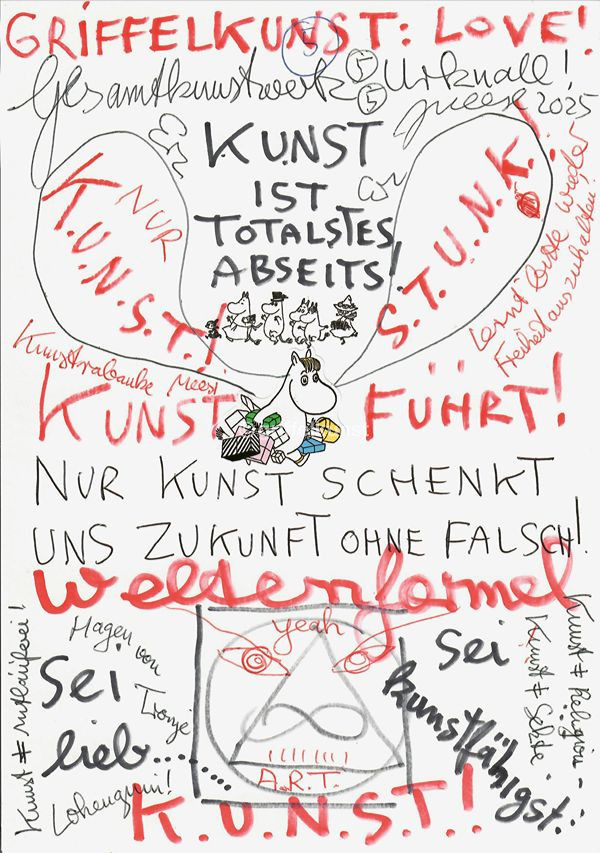 GRIFFELKUNST: LOVE!
5
Gesamtkunstwerk 5 Urknall!
5
Meese 2025
Erz
KUNST
IST
TOTALSTES
ABSEITS!
Erz
K.U.N.S.T.!
NUR
S.T.U.N.K.!
Lernt bitte wieder
Freiheit auszuhalten!
Kunstrabauke Meese
KUNST FÜHRT!
NUR KUNST SCHENKT
UNS ZUKUNFT OHNE FALSCH!
Weltenformel
Kunst ≠ Mitläuferei!
Hagen von
Tronje
Sei
lieb........
Lohengrin!
yeah
A.R.T.
Sei
kunstfähigst...
Kunst ≠ Religion
Kunst ≠ Sekte
K.U.N.S.T.!